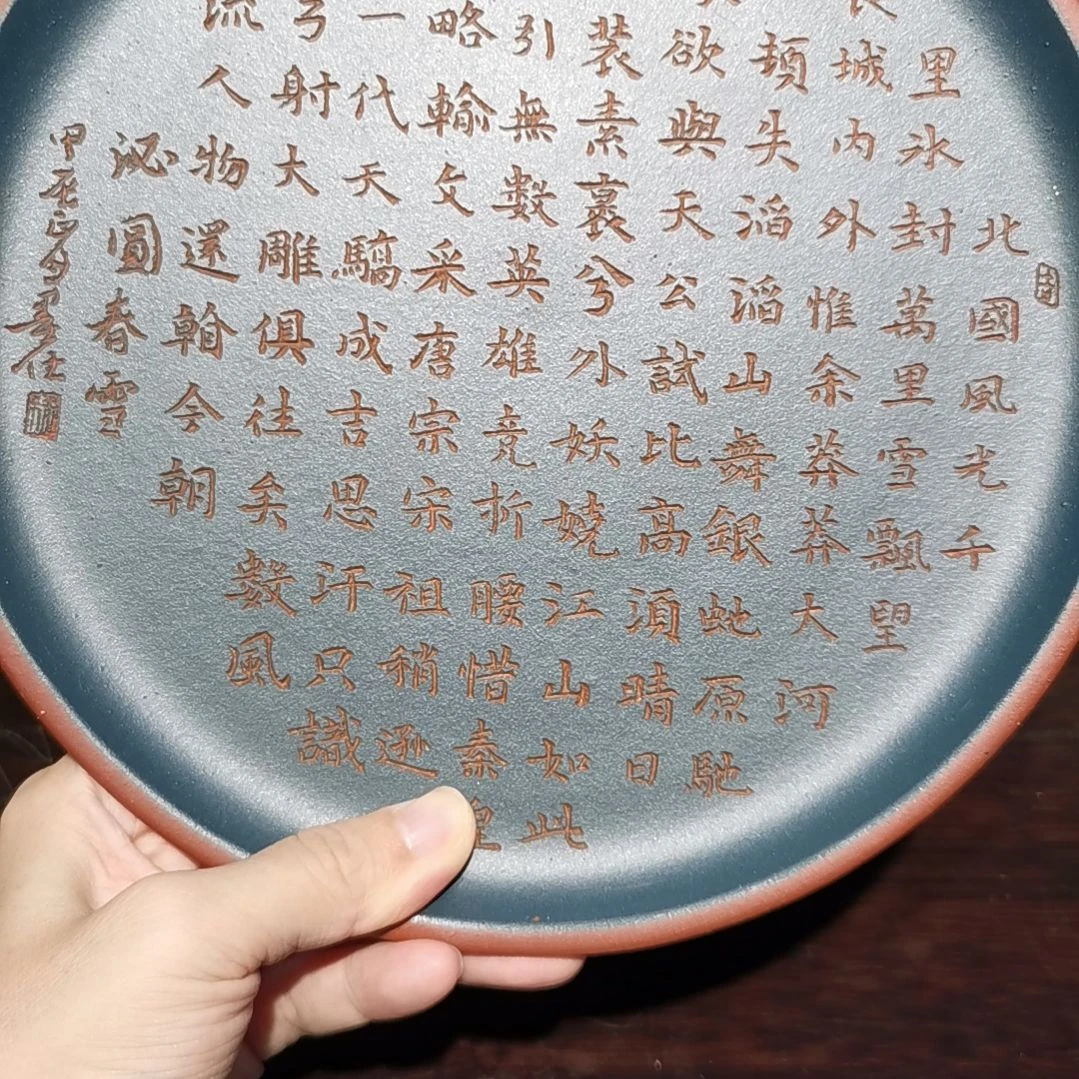 北國風光千
里氷封萬里雪飄望
長城內外惟余莽莽大河
頓失滔滔山舞銀虵原馳
欲與天公試比高須晴日
裝素裹兮外妖嬈江山如此
引無數英雄竞折腰惜秦皇
略輸文采唐宗宋祖稍遜
一代天驕成吉思汗只識
弓射大雕俱往矣數風
流人物還翰今朝
泌圓春雪
甲辰